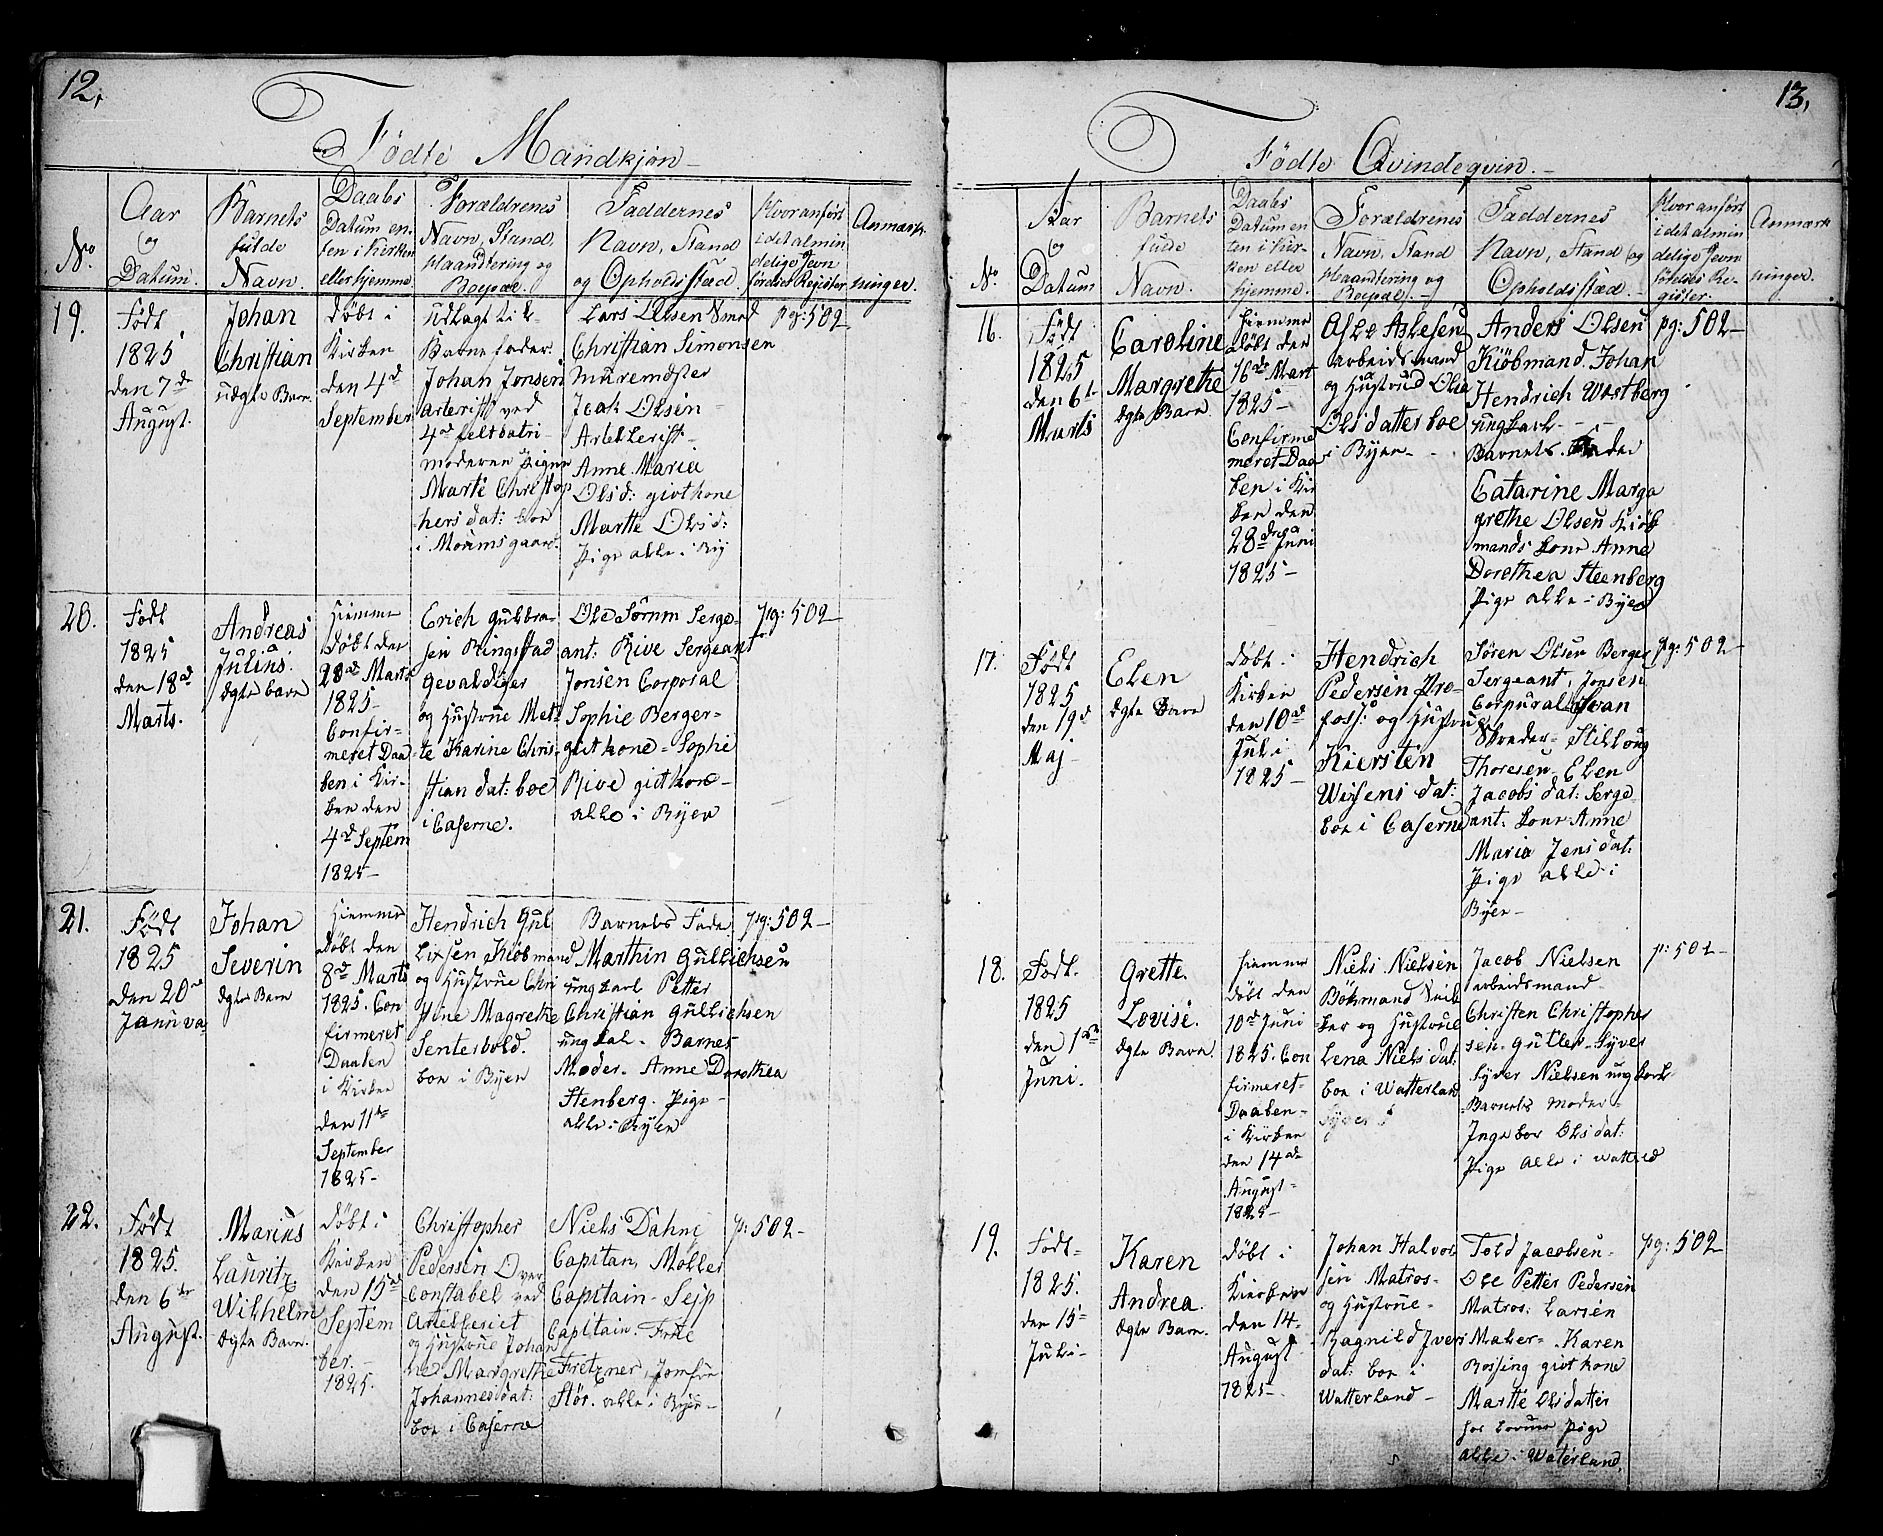 12.
Födte Mandkjøn
No
Aar
og
Datum.
Barnets
fulde
Navn.
Daabs
Datum en-
ten i Kirken
eller hjemme.
Forældrenes
Navn, Stand,
Haandtering og
Boepæl.
Faddernes
Navn, Stand
og Opholdsstæd.
Hvor anført
i det almin
delige Jevn
førelses Register
Anmærk-
ninger.
19.
Födt
1825
den 7de
August.
Johan
Christian
uægte Barn.
Döbt i
Kirken
den 4d
September
Udlagt til
Barnefader.
Johan Jonsen
Arterist ved
4d feltbatri-
moderen Pigen
Marte Christop
hersdat: boe
i Mommsgaard.
Lars Olsen Smed
Christian Simonsen
Muremester
Olsen -
Artellerist -
Anne Maria
Olsd: givt kone
Martte Olsd:
Pige alle i By
pg: 502
20.
Födt
1825
den 18d
Marts.
Andreas
Julius.
ægte barn
Hiemme
Döbt den
28d Marts
1825 -
Confir-
meret Daa
ben i Kir-
ken den
4d Septem
1825 -
Erich Gulbra-
sen Ringstad
Gevaldiger
og Hustrue Met-
te Karine Chris-
tian dat: boe
i Caserne.
Ole Sörum Serge-
ant: Rive Sergeant
Jonsen Corporal
Sophie Berger-
givt kone - Sophie
Rive givt kone -
alle i Byen
pg: 502
21.
Födt
1825
den 20de
Januva
Johan
Severin
ægte Barn
Hiemme
Döbt den
8d Marts
1825. Con
firmeret
Daaben
i Kirken
den 11te
September
1825 -
Hendrich Gul
Kiöbmand
og Hustrue Chri
stine Magrethe
Senterbold.
boe i Byen
Barnets Fader
Marthin Gullichsen
ungkarl Petter
Christian Gullichsen
ungkal - Barnes
Moder - Anne Dorothea
Stenberg - Pige -
alle i Byen
pg: 502 -
22.
Födt
1825.
den 6te
August.
Marius
Lauritz
Wilhelm
ægte Barn.
Döbt i
Kirken
den 15d
Septem
ber. -
1825.
Christopher
Pedersen Over
Constabel ved
Artelleriet
og Hustrue Johan
ne Margrethe
Johannesdat:
boe i Caserne
Niels Dahni
Capitan, Möller
Capitain - Sejp
Capitain. Frue
Fretzner, Jomfru
Stör. alle i Byen -
p: 502 -
13.
Födte Qvindeqvin.
No
Aar
og
Datum
Barnets
fulde
Navn.
Daabs
Datum en
ten i Kir-
ken eller
hjemme.
Forældrenes
Navn, Stand
Haandtering og
Boepæl. -
Faddernes
Navn, Stand og
Opholdsstæd. -
Hvor anført
i det almin
delige Jevn
førelses Re-
gister.
Anmærk
ninger.
16.
Födt
1825
den 6te
Marts
Caroline
Margrethe
ægte Barn.
Hiemme
döbt den
16de Mart
1825 -
Confirme
meret Daa
ben i Kir
ken den
28de Juni
1825 -
Aslesen
Arbeidsmand
og Hustrud Olea
Olsdatter boe
i Byen -
Anders Olsen
Kiöbmand. Johan
Hendrich Westberg
ungkarl -
Barnets Fader
Catarine Marga
grethe Olsen Kiöb
mands kone Anne
Dorethea Steenberg
Pige alle i Byen
pg: 502 -
17.
Födt
1825
den 19d
Maj -
Elen
ægte Barn
Döbt i
Kirken
den 10d
Juli
1825 -
Hendrich
Pedersen Pro-
foss: og Hustrue
Kiersten
dat:
boe i Caserne
Sören Olsen Berger
Sergeant, Jonsen
Corpural
Thoresen - Elen
Jacobs dat: Serge
ant: kone Anne
Maria Jensdat:
Pige alle i
Byen -
pg: 502 -
18.
Födt.
1825
den 1ste
Juni.
Grette
Lovise.
ægte Barn.
Hiemme
döbt den
10d Juni
1825. Con
firmeret -
Daaben -
i Kirken
den 14de
August -
1825 -
Niels Nielsen
og Hustrue
Lena Nielsdat:
boe i Watterland
Jacob Nielsen
Arbeidsmand -
Christen Christopher
sen - Syver
Syver Nielsen ungkarl
Barnets Moder -
Ingebor Olsdat:
Pige alle i Watteld
p: 502 -
19.
Födt -
1825.
den 15
Juli -
Karen
Andrea.
ægte Barn.
Döbt i
Kierken
den 14 -
August
1825 -
Johan Halvor
sen Matros -
og Hustrue -
Ragnild Iver
dat: boe i
Watterland -
Told Jacobsen -
Ole Petter Pedersen
Matros: Larsen
Maler - Karen
Bossing givt kone
Martte Olsdatter
Pige
alle i Waterland.
pg: 502